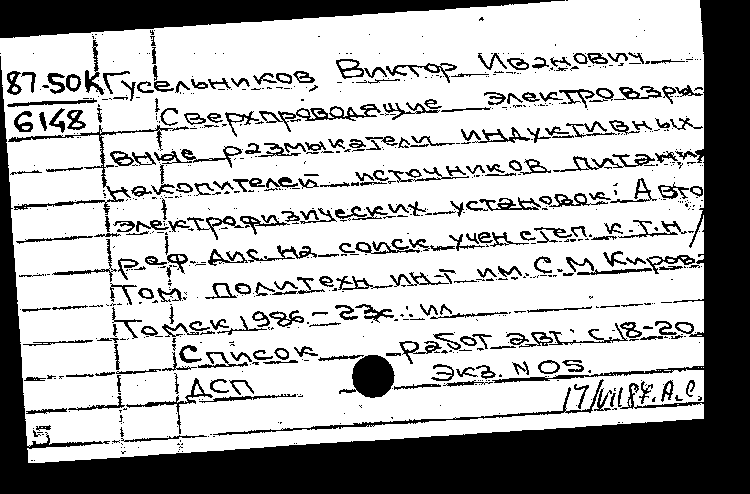 87-50К Гусельников, Виктор Иванович
6148 Сверхпроводящие электровзры-
вные размыкатели индуктивных
накопителей источников питания
электрофизических установок: Авто
реф. дис. на соиск. учен степ. к.т.н /
Том. политехн ин-т им. С.М Кирова
Томск, 1986.- 23с.: ил
Список работ авт.: с.18-20
ДСП Экз. N 05.
17/VII87. А.С.
5